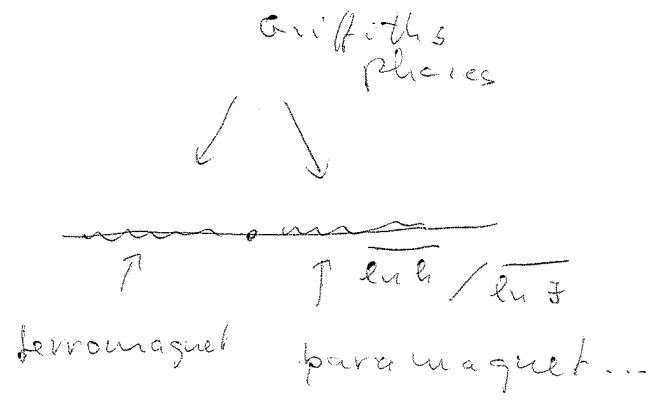 Griffiths
phases
ln h / ln J
ferromagnet
paramagnet...